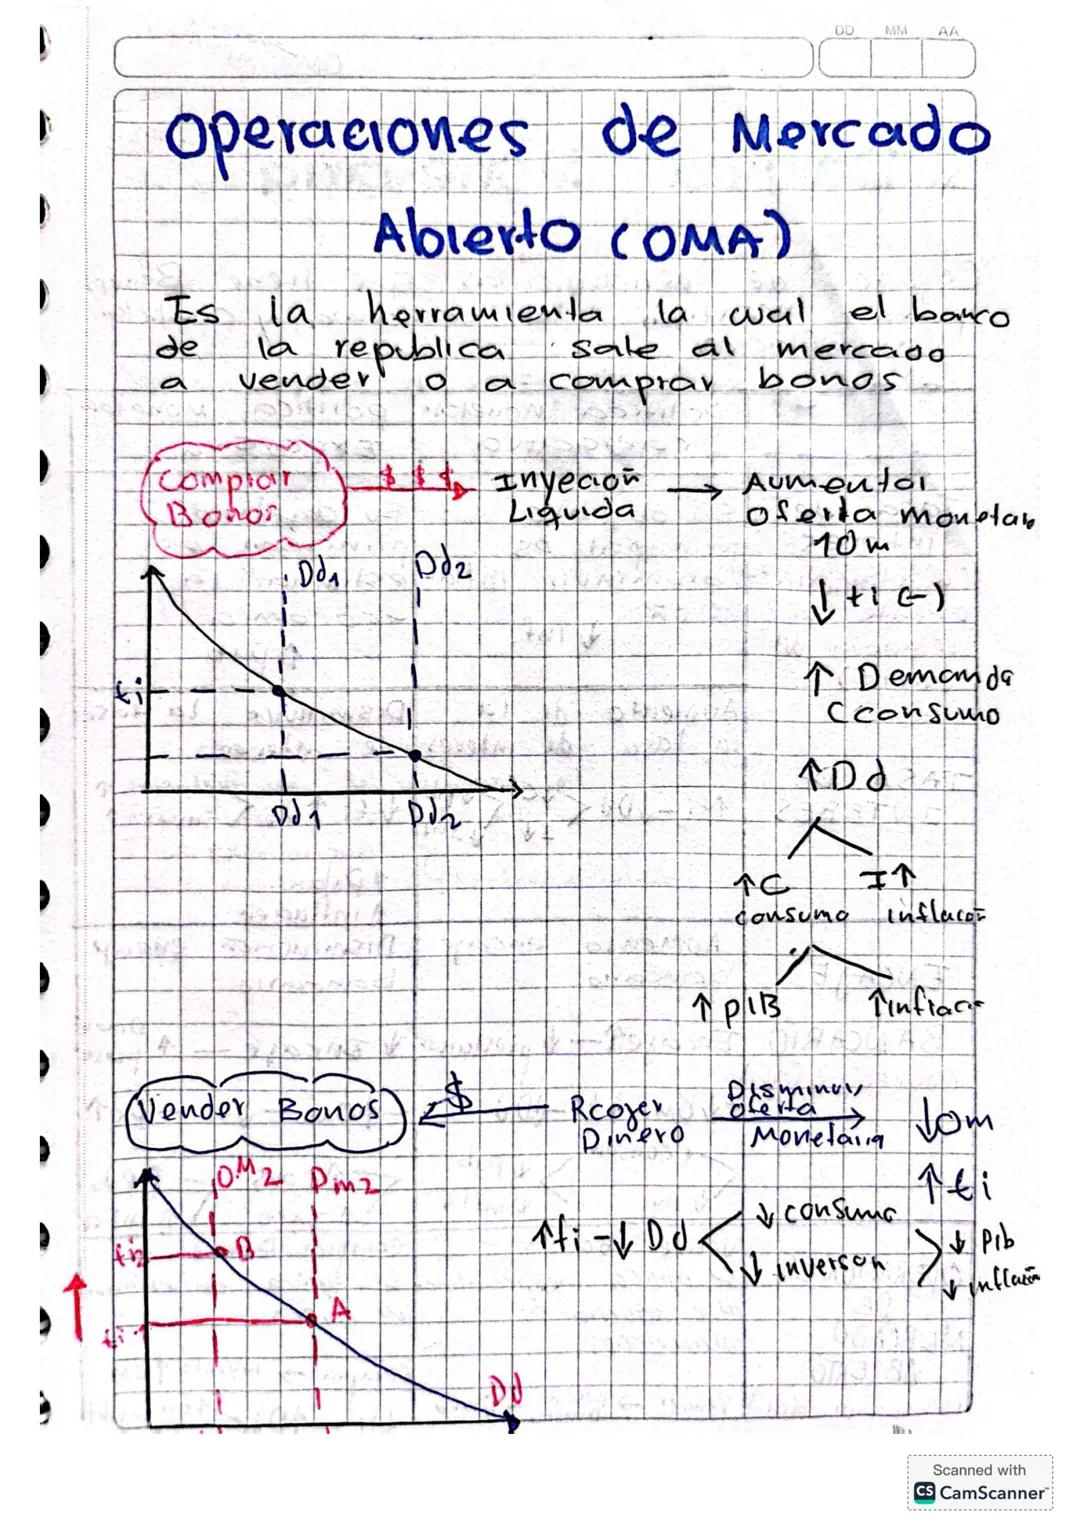 DD MM AA
Operaciones de Mercado
Abierto (OMA)
Es la herramienta la cual el banco
de la republica sale al mercado
a vender o a comprar bonos
Comprar
Bonos
$ $ $
Inyección
Liquida
Aumentar
oferta monetar
10m
↓ ti (-)
↑ Demanda
(consumo
↑ Dd
↑C I↑
consumo inflación
↑ PIB ↑inflaci
Dd1 Dd2
ti
Dd1 Dd2
Vender Bonos
$
Rcoger
Dinero
Disminuir
oferta
Monetaria
↓om
↑ ti
↑ti - ↓ Dd
↓ consumo
↓ inverson
↓ Pib
↓ inflación
OM2 Dm2
ti2 B
ti1 A
Dd
Scanned with
CS CamScanner